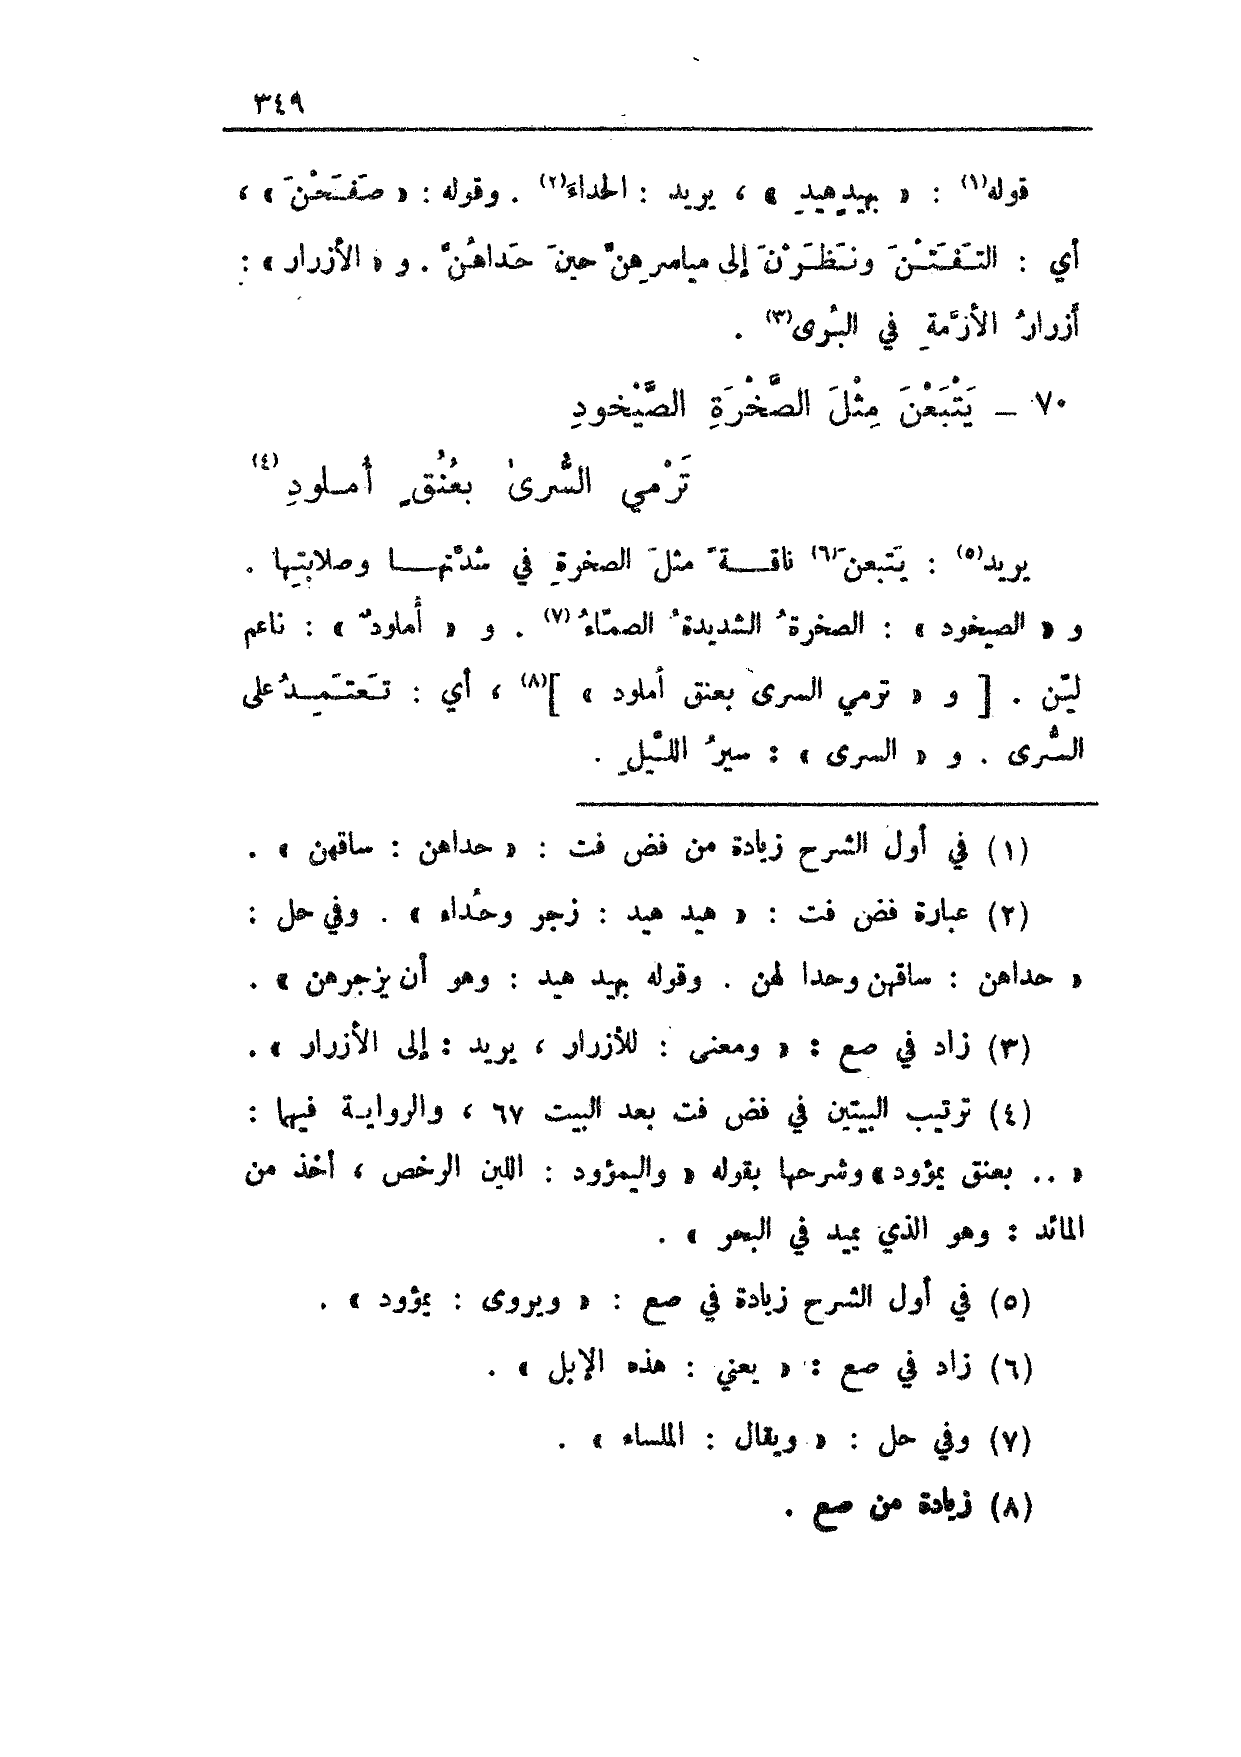 ٣٤٩
قوله(١) : « بهيدِهيدِ » ، يريد : الحداءَ(٢) . وقوله : « صَفَحْنَ » ،
أي : التَفَتْنَ ونَظَرْنَ إلى مياسرِهنَّ حينَ حَداهُنَّ . و « الأزرار » :
أزرارُ الأزمّةِ في البُرى(٣) .
٧٠ – يَتْبَعْنَ مِثْلَ الصَّخْرَةِ الصَّيْخودِ
تَرْمي السُّرىٰ بعُنُقٍ أُملودِ(٤)
يريد(٥) : يَتبعنَ(٦) ناقةً مثلَ الصخرةِ في شدّتها وصلابتِها .
و « الصيخود » : الصخرةُ الشديدةُ الصمّاءُ(٧) . و « أُملودٌ » : ناعم
ليّن . [ و « ترمي السرى بعنق أملود » ](٨) ، أي : تَعتَمِدُ على
السُّرى . و « السرى » : سيرُ اللَّيلِ .
(١) في أول الشرح زيادة من فض فت : « حداهن : ساقهن » .
(٢) عبارة فض فت : « هيد هيد : زجر وحُداء » . وفي حل :
« حداهن : ساقهن وحدا لهن . وقوله بهيد هيد : وهو أن يزجرهن » .
(٣) زاد في صع : « ومعنى : للأزرار ، يريد : إلى الأزرار » .
(٤) ترتيب البيتين في فض فت بعد البيت ٦٧ ، والرواية فيها :
« .. بعنق يمؤود » وشرحها بقوله « واليمؤود : اللين الرخص ، أخذ من
المائد : وهو الذي يميد في البحر » .
(٥) في أول الشرح زيادة في صع : « ويروى : يمؤود » .
(٦) زاد في صع : « يعني : هذه الإبل » .
(٧) وفي حل : « ويقال : الملساء » .
(٨) زيادة من صع .